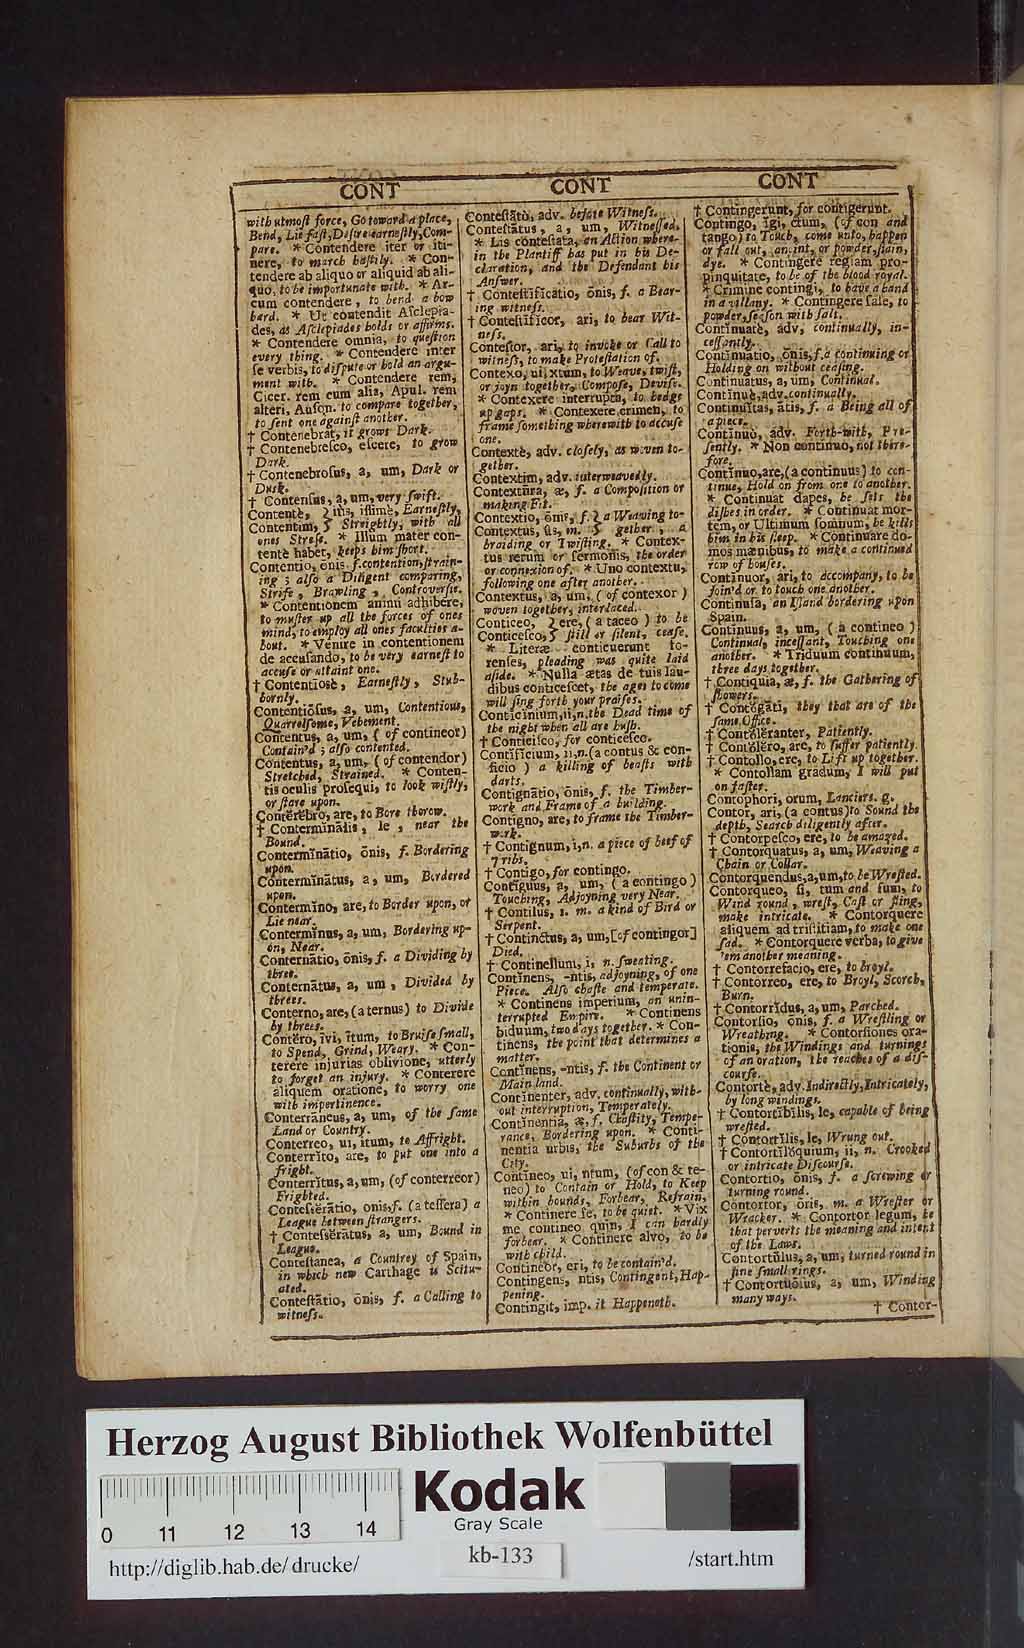 CONT
with utmoſt force, Go toward a place,
Bend, Lie faſt, Deſire earneſtly, Com-
pare. * Contendere iter or iti-
nere, to march haſtily. * Con-
tendere ab aliquo or aliquid ab ali-
quo, to be importunate with. * Ar-
cum contendere, to bend a bow
hard. * Ut contendit Aſclepia-
des, as Aſclepiades holds or affirms.
* Contendere omnia, to queſtion
every thing. * Contendere inter
ſe verbis, to diſpute or hold an argu-
ment with. * Contendere rem,
Cicer. rem cum alia, Apul. rem
alteri, Auſon. to compare together,
to ſent one againſt another.
† Contenebrat, it grows Dark.
† Contenebreſco, eſcere, to grow
Dark.
† Contenebroſus, a, um, Dark or
Dusk.
† Contenſus, a, um, very ſwift.
Contentè, } iùs, iſſimè, Earneſtly,
Contentim, } Streightly, with all
ones Streſs. * Illum mater con-
tentè habet, keeps him ſhort.
Contentio, ōnis. f. contention, ſtrain-
ing; alſo a Diligent comparing,
Strife, Brawling, Controverſie.
* Contentionem animi adhibere,
to muſter up all the forces of ones
mind, to employ all ones faculties a-
bout. * Venire in contentionem
de accuſando, to be very earneſt to
accuſe or attaint one.
† Contentiosè, Earneſtly, Stub-
bornly.
Contentiōſus, a, um, Contentious,
Quarrelſome, Vehement.
Contentus, a, um, ( of contineor)
Contain'd; alſo contented.
Contentus, a, um, ( of contendor)
Stretched, Strained. * Conten-
tis oculis proſequi, to look wiſtly,
or ſtare upon.
Contĕrĕbro, are, to Bore thorow.
† Conterminālis, le, near the
Bound.
Contermĭnātio, ōnis, f. Bordering
upon.
Contermĭnātus, a, um, Bordered
upon.
Contermĭno, are, to Border upon, or
Lie near.
Conterminus, a, um, Bordering up-
on, Near.
Conternātio, ōnis, f. a Dividing by
three.
Conternātus, a, um, Divided by
threes.
Conterno, are, (a ternus) to Divide
by threes.
Contĕro, ivi, ītum, to Bruiſe ſmall,
to Spend, Grind, Weary. * Con-
terere injurias oblivione, utterly
to forget an injury. * Conterere
aliquem oratione, to worry one
with impertinence.
Conterrāneus, a, um, of the ſame
Land or Country.
Conterreo, ui, ĭtum, to Affright.
Conterrĭto, are, to put one into a
fright.
Conterrĭtus, a, um, (of conterreor)
Frighted.
Conteſſĕrātio, onis, f. (a teſſera) a
League between ſtrangers.
† Conteſſĕratus, a, um, Bound in
League.
Conteſtanea, a Countrey of Spain,
in which new Carthage is Scitu-
ated.
Conteſtātio, ōnis, f. a Calling to
witneſs.
CONT
Conteſtātò, adv. before Witneſs.
Conteſtātus, a, um, Witneſſed.
* Lis conteſtata, an Action where-
in the Plantiff has put in his De-
claration, and the Defendant his
Anſwer.
† Conteſtifĭcatio, ōnis, f. a Bear-
ing witneſs.
† Conteſtifĭcor, ari, to bear Wit-
neſs.
Conteſtor, ari, to invoke or Call to
witneſs, to make Proteſtation of.
Contexo, ui, xtum, to Weave, twiſt,
or joyn together, Compoſe, Deviſe.
* Contexere interrupta, to hedge
up gaps. * Contexere crimen, to
frame ſomething wherewith to accuſe
one.
Contextè, adv. cloſely, as woven to-
gether.
Contextim, adv. interweavedly.
Contextūra, æ, f. a Compoſition or
making Fit.
Contextio, ōnis, f. } a Weaving to-
Contextus, ûs, m. } gether, a
braiding or Twiſting. * Contex-
tus rerum or ſermonis, the order
or connexion of. * Uno contextu,
following one after another.
Contextus, a, um, ( of contexor )
woven together, interlaced.
Conticeo, } ere, ( a taceo ) to be
Conticeſco, } ſtill or ſilent, ceaſe.
* Literæ conticuerunt fo-
renſes, pleading was quite laid
aſide. * Nulla ætas de tuis lau-
dibus conticeſcet, the ages to come
will ſing forth your praiſes.
Conticinium, ii, n. the Dead time of
the night when all are huſh.
† Conticiſco, for conticeſco.
Contificium, ii, n. (a contus & con-
ficio ) a killing of beaſts with
darts.
Contignātio, ōnis, f. the Timber-
work and Frame of a building.
Contigno, are, to frame the Timber-
work.
† Contignum, i, n. a piece of beef of
7 ribs.
† Contigo, for contingo.
Contĭguus, a, um, ( a contingo )
Touching, Adjoyning very Near.
† Contilus, i. m. a kind of Bird or
Serpent.
† Continctus, a, um, [of contingor]
Died.
† Contineſlum, i, n. ſweating.
Contĭnens, -ntis, adjoyning, of one
Piece. Alſo chaſte and temperate.
* Continens imperium, an unin-
terrupted Empire. * Continens
biduum, two days together. * Con-
tinens, the point that determines a
matter.
Contĭnens, -ntis, f. the Continent or
Main land.
Contĭnenter, adv. continually, with-
out interruption, Temperately.
Contĭnentia, æ, f. Chaſtity, Tempe-
rance, Bordering upon. * Conti-
nentia urbis, the Suburbs of the
City.
Contĭneo, ui, ntum, (of con & te-
neo) to Contain or Hold, to Keep
within bounds, Forbear, Refrain,
* Continere ſe, to be quiet. * Vix
me contineo quin, I can hardly
forbear. * Continere alvo, to be
with child.
Contineor, eri, to be contain'd.
Contingens, ntis, Contingent, Hap-
pening.
Contingit, imp. it Happeneth.
CONT
† Contingerunt, for contigerunt.
Contingo, ĭgi, ctum, (of con and
tango) to Touch, come unto, happen
or fall out, anoint, or powder, ſtain,
dye. * Contingere regiam pro-
pinquitate, to be of the blood royal.
* Crimine contingi, to have a hand
in a villany. * Contingere ſale, to
powder, ſeaſon with ſalt.
Contĭnuatè, adv, continually, in-
ceſſantly.
Contĭnuatio, ōnis, f. a continuing or
Holding on without ceaſing.
Continuatus, a, um, Continual.
Contĭnuè, adv. continually.
Continuĭtas, ātis, f. a Being all of
a piece.
Continuò, adv. Forth-with, Pre-
ſently. * Non continuo, not there-
fore.
Contĭnuo, are, ( a continuus ) to con-
tinue, Hold on from one to another.
* Continuat dapes, he ſets the
diſhes in order. * Continuat mor-
tem, or Ultimum ſomnum, he kills
him in his ſleep. * Continuare do-
mos mœnibus, to make a continued
row of houſes.
Continuor, ari, to accompany, to be
join'd or to touch one another.
Continuſa, an Iſland bordering upon
Spain.
Continuus, a, um, ( à contineo )
Continual, inceſſant, Touching one
another. * Triduum continuum,
three days together.
† Contiquia, æ, f. the Gathering of
flowers.
† Contŏgāti, they that are of the
ſame Office.
† Contŏlĕranter, Patiently.
† Contŏlĕro, are, to ſuffer patiently.
† Contollo, ere, to Lift up together.
* Contollam gradum, I will put
on faſter.
Contophori, orum, Lanciers. g.
Contor, ari, (a contus) to Sound the
depth, Search diligently after.
† Contorpeſco, ere, to be amazed.
† Contorquatus, a, um, Weaving a
Chain or Collar.
Contorquendus, a, um, to be Wreſted.
Contorqueo, ſi, tum and ſum, to
Wind round, wreſt, Caſt or fling,
make intricate. * Contorquere
aliquem ad triſtitiam, to make one
ſad. * Contorquere verba, to give
'em another meaning.
† Contorrefacio, ere, to broyl.
† Contorreo, ere, to Broyl, Scorch,
Burn.
† Contorrĭdus, a, um, Parched.
Contorſio, ōnis, f. a Wreſtling or
Wreathing. * Contorſiones ora-
tionis, the Windings and turnings
of an oration, the reaches of a diſ-
courſe.
Contortè, adv. Indirectly, Intricately,
by long windings.
† Contortĭbĭlis, le, capable of being
wreſted.
† Contortĭlis, le, Wrung out.
† Contortĭlŏquium, ii, n. Crooked
or intricate Diſcourſe.
Contortio, ōnis, f. a ſcrewing or
turning round.
Contortor, ōris, m. a Wreſter or
Wracker. * Contortor legum, he
that perverts the meaning and intent
of the Laws.
Contortŭlus, a, um, turned round in
fine ſmall rings.
† Contortuōſus, a, um, Winding
many ways.
† Contor-
Herzog August Bibliothek Wolfenbüttel
0 11 12 13 14
Kodak
Gray Scale
http://diglib.hab.de/drucke/
kb-133
/start.htm